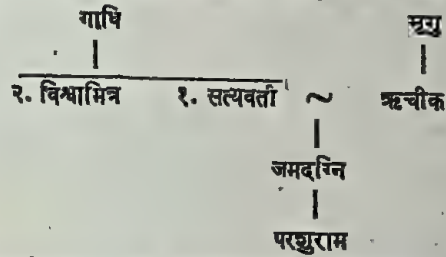 गाधि भृगु
२. विश्वामित्र १. सत्यवती ~ ऋचीक
जमदग्नि
परशुराम